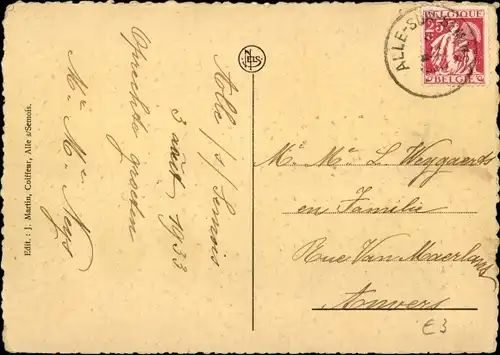 Edit. : J. Martin, Coiffeur, Alle s/Semois.
Alle /s/ Semois
3 août 1933
Oprechte groeten
Mr. Me. Neys
NELS
ALLE-SUR-SEM
BELGIQUE
25c
BELGIË
Mr Me L Weygaerts
en Familie
Rue Van Maerland
Anvers
£3